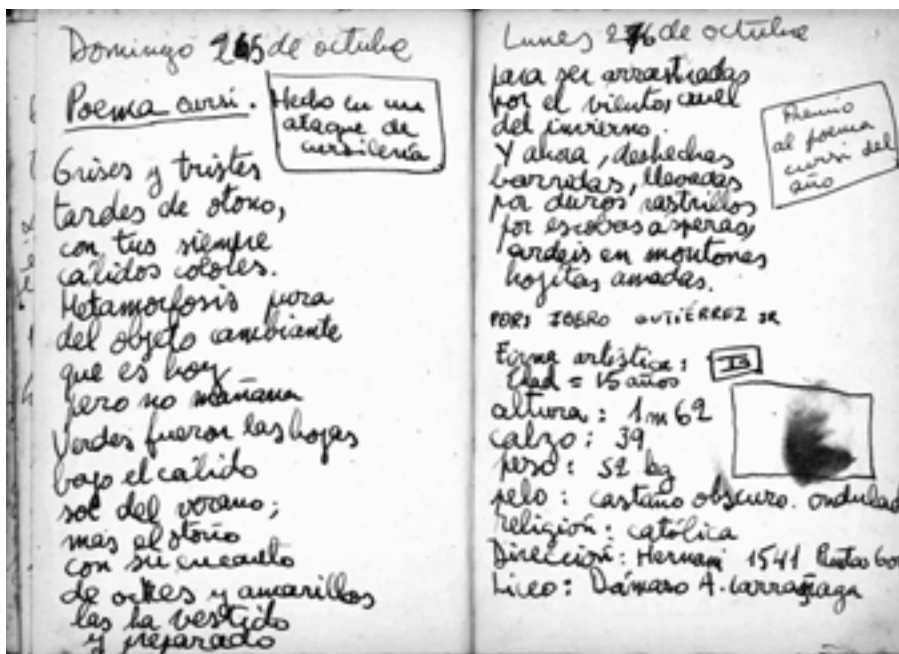 Domingo 265 de octubre
Poema cursi.
Hecho en un
ataque de
cursilería
Grises y tristes
tardes de otoño,
con tus siempre
cálidos colores.
Metamorfosis pura
del objeto ambiante
que es hoy
pero no mañana
Verdes fueron las hojas
bajo el cálido
sol del verano;
mas el otoño
con su encanto
de ocres y amarillos
las ha vestido
y preparado
Lunes 276 de octubre
para ser arrastradas
por el viento cruel
del invierno.
Y ahora, deshechas
barridas, llevadas
por duros rastrillos
por escobas ásperas,
ardéis en montones
hojitas amadas.
Premio
al poema
cursi del
año
POR: IBERO GUTIÉRREZ
Firma artística: IG
Edad = 15 años
altura: 1 m 62
calzo: 39
peso: 52 kg
pelo: castaño obscuro. ondulad
religión: católica
Dirección: Hernani 1541
Liceo: Dámaso A. Larrañaga